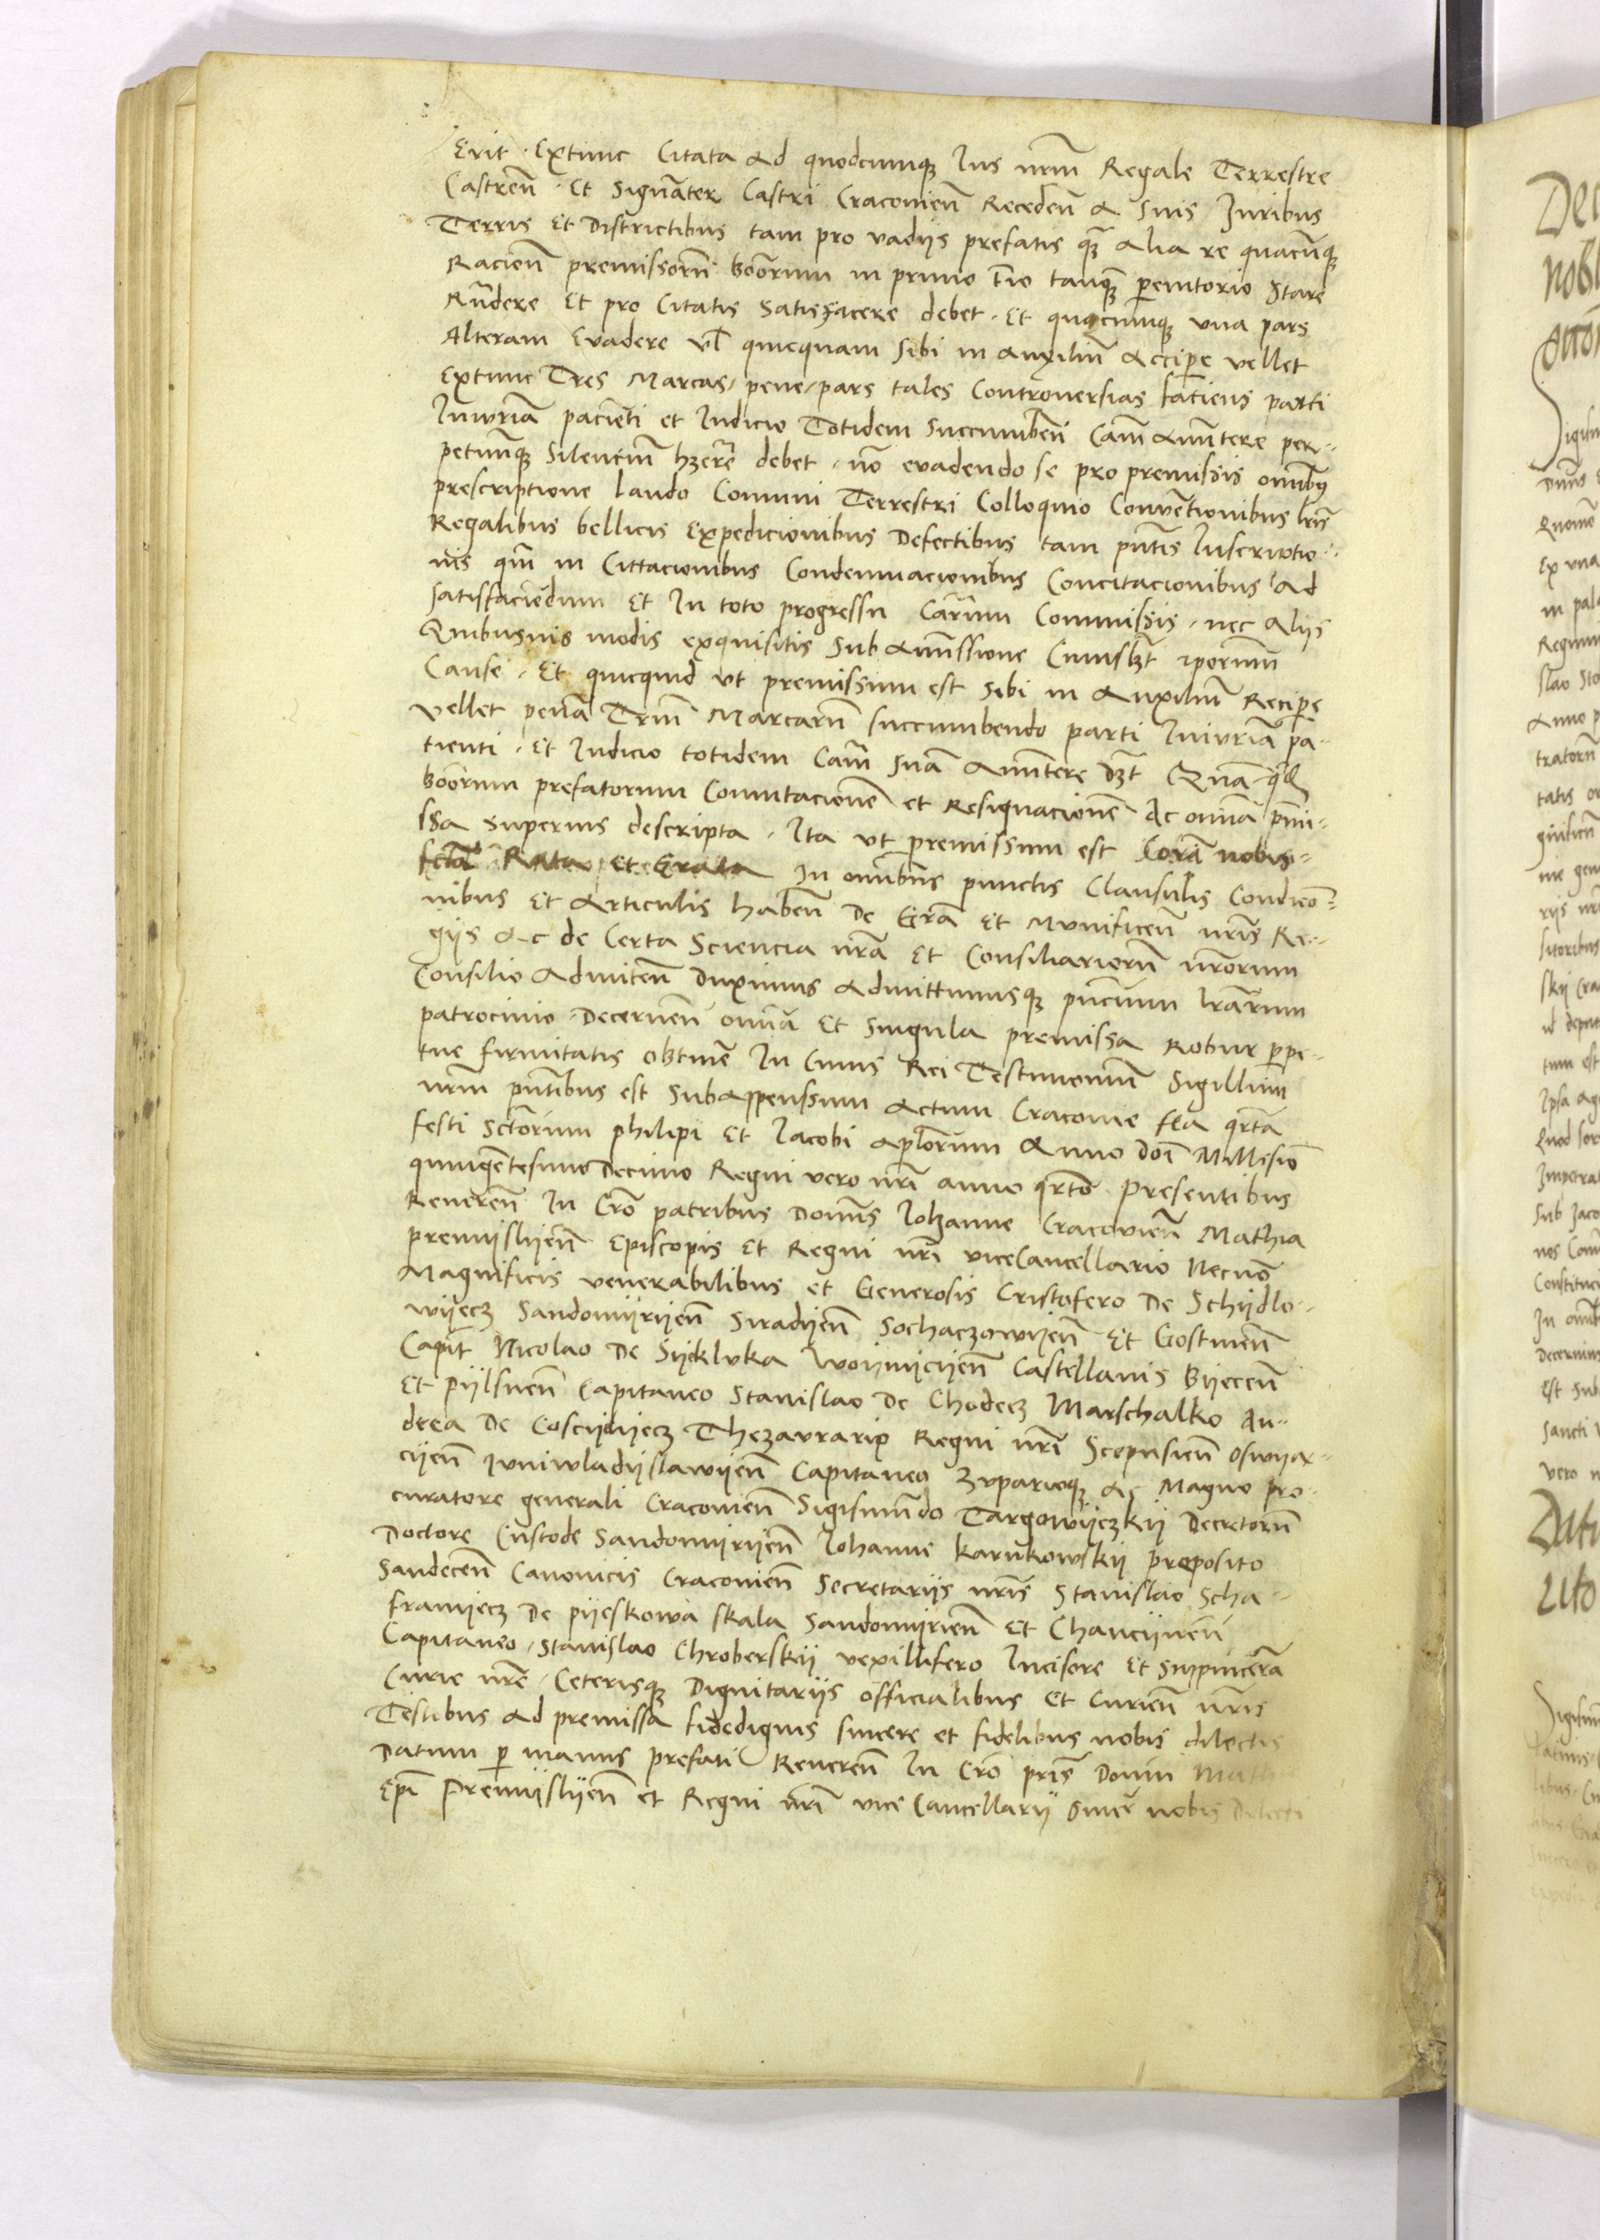 Erit Extunc Citata Ad quodcumque Ius nrm Regale Terrestre
Castren Et Signanter Castri Cracovien Receden A Suis Iuribus
Terris Et Districtibus tam pro vadijs prefatis qz Alia re quacunque
Racien premissorum bonorum in primo tio tanqz peremtorio Stare
Rndere Et pro Citatis Satisfacere debet Et quacumque una pars
Alteram Evadere vl quicquam Sibi in Auxilium Accipe vellet
Extunc Tres Marcas pene pars tales Controversias faciens parti
Iniuriam pacienti et Iudicio Totidem Succumben Cam Amittere per-
petuumque Silentium debet non evadendo se pro premissis omnibus
prescriptione laudo Comuni Terrestri Colloquio Conventionibus lris
Regalibus bellicis Expedicionibus Defectibus tam pntis Inscriptio-
nis qm in Cittacionibus Condemnacionibus Concitacionibus Ad
Satisfaciendum Et In toto progressu Carum Commissis nec Aliis
Quibusvis modis exquisitis Sub Amissione
Cause Et quicquid ut premissum est Sibi in Auxilium Recipe
vellet penam Trium Marcarum succumbendo parti Iniuriam pa-
tienti Et Iudicio totidem Cam Suam Amittere dzt Quam qd
bonorum prefatorum Comutacionem et Resignacionem Ac omnia pmi-
ssa Superius descripta Ita ut premissum est Coram nobis
fcta Rata Et Grata In omnibus punctis Clausulis Condicio-
nibus Et Articulis haben De Gra Et Munificen nris Re-
gijs Ac de Certa Sciencia nra Et Consiliariorum nrorum
Consilio Admitten Duximus Admittimusque pncium lrarum
patrocinio Decernen omnia Et Singula premissa Robur ppe-
tue firmitatis obtinere In Cuius Rei Testimonium Sigillum
nrm pntibus est Subappensum Actum Cracovie fia qrta
festi Sctorum philipi Et Iacobi Aplorum Anno Doi Millesimo
quingentesimo Decimo Regni vero nri anno qrto Presentibus
Reveren In Cro patribus Domnis Iohanne Cracovien Mathia
premijslijen Episcopis Et Regni nri viceCancellario Necnon
Magnificis venerabilibus et Generosis Cristofero De Schijdlo-
wijecz Sandomijrijen Siradijen Sochaczowijen Et Gostinen
Capit Nicolao De Sijekluka Woijnicijen Castellanis Bijecen
Et pijlsnen Capitaneo Stanislao De Chodecz Marschalko An-
drea De Coscijelijecz Thezaurario Regni nri Scepusien Oswija-
cijen Iuniwladijslawijen Capitaneo Zuparioque Ac Magno pro-
curatore generali Cracovien Sigismundo Targowijczkij Decretorum
Doctore Custode Sandomirijen Iohanne Karnkowskij preposito
Sandecen Canonicis Cracovien Secretarijs nris Stanislao Scha-
franijecz De pijeskowa skala Sandomijrien Et Chancijnen
Capitaneo Stanislao Chroberskij vexillifero Incisore Et Suppincerna
Curie nre Ceterisque Dignitarijs officialibus Et Curien nris
Testibus Ad premissa fidedignis sincere et fidelibus nobis dilectis
Datum p manus prefati Reveren In Cro pris Domini Math
Epi Premijslijen et Regni nri vice Cancellarij Sincer nobis Dilecti